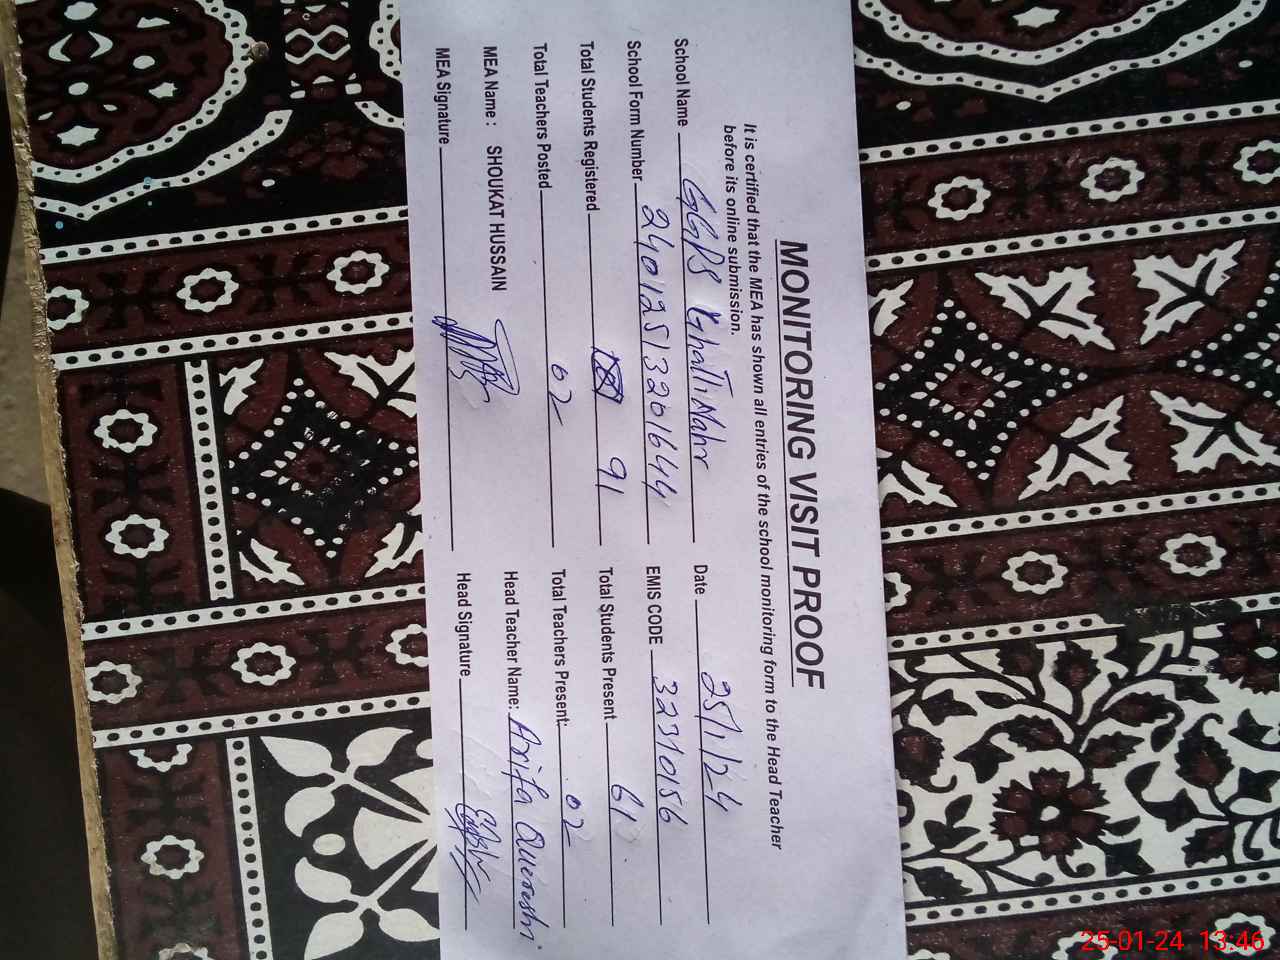 MONITORING VISIT PROOF
It is certified that the MEA has shown all entries of the school monitoring form to the Head Teacher
before its online submission.
School Name GGPS Khatti Nahr Date 25/1/24
School Form Number 24012513201644 EMIS CODE 32310156
Total Students Registered 91 Total Students Present 61
Total Teachers Posted 02 Total Teachers Present: 02
MEA Name : SHOUKAT HUSSAIN Head Teacher Name: Arifa Quereshi
MEA Signature Head Signature
25-01-24 13:46